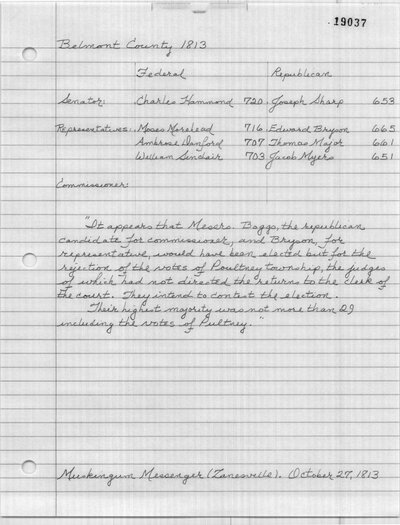 19037
Belmont County 1813
Federal Republican
Senator: Charles Hammond 720. Joseph Sharp 653
Representatives: Moses Morehead 716 Edward Bryson 665
Ambrose Danford 707 Thomas Major 661
William Sinclair 703 Jacob Myers 651
Commissioner:
"It appears that Messrs. Baggs, the republican
candidate for commissioner, and Bryson, for
representative, would have been elected but for the
rejection of the votes of Poultney township, the judges
of which had not directed the returns to the clerk of
the court. They intend to contest the election.
Their highest majority was not more than 29
including the votes of Pultney."
Muskingum Messenger (Zanesville). October 27, 1813